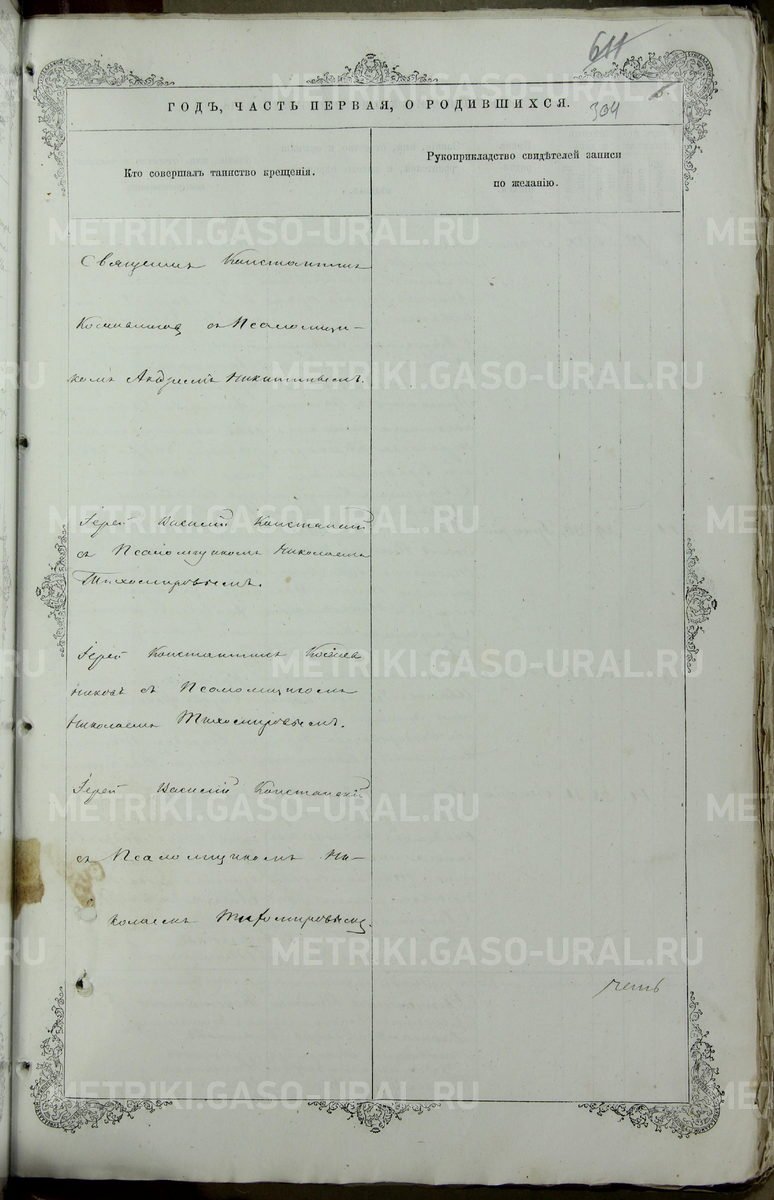 611
ГОДЪ, ЧАСТЬ ПЕРВАЯ, О РОДИВШИХСЯ.
304
Кто совершалъ таинство крещенія.
Рукоприкладство свидѣтелей записи
по желанію.
Священникъ Константинъ
съ Псаломщи-
комъ Андреемъ Никитинымъ.
Іерей Василій
съ Псаломщикомъ Николаемъ
Тихомировымъ.
Іерей Константинъ
съ Псаломщикомъ
Николаемъ Тихомировымъ.
Іерей Василій
съ Псаломщикомъ Ни-
колаемъ Тихомировымъ.
METRIKI.GASO-URAL.RU